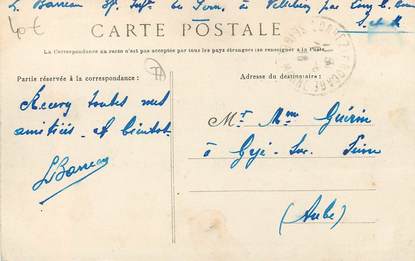 L. Barreau
40€
CARTE POSTALE
La Correspondance au recto n'est pas acceptée par tous les pays étrangers (se renseigner à la Poste).
Partie réservée à la correspondance:
Adresse du destinataire:
Recevez toutes nos
amitiés et bientôt
LBarreau
Mr Mme Guérin
à Gyé-Sur-Seine
(Aube)